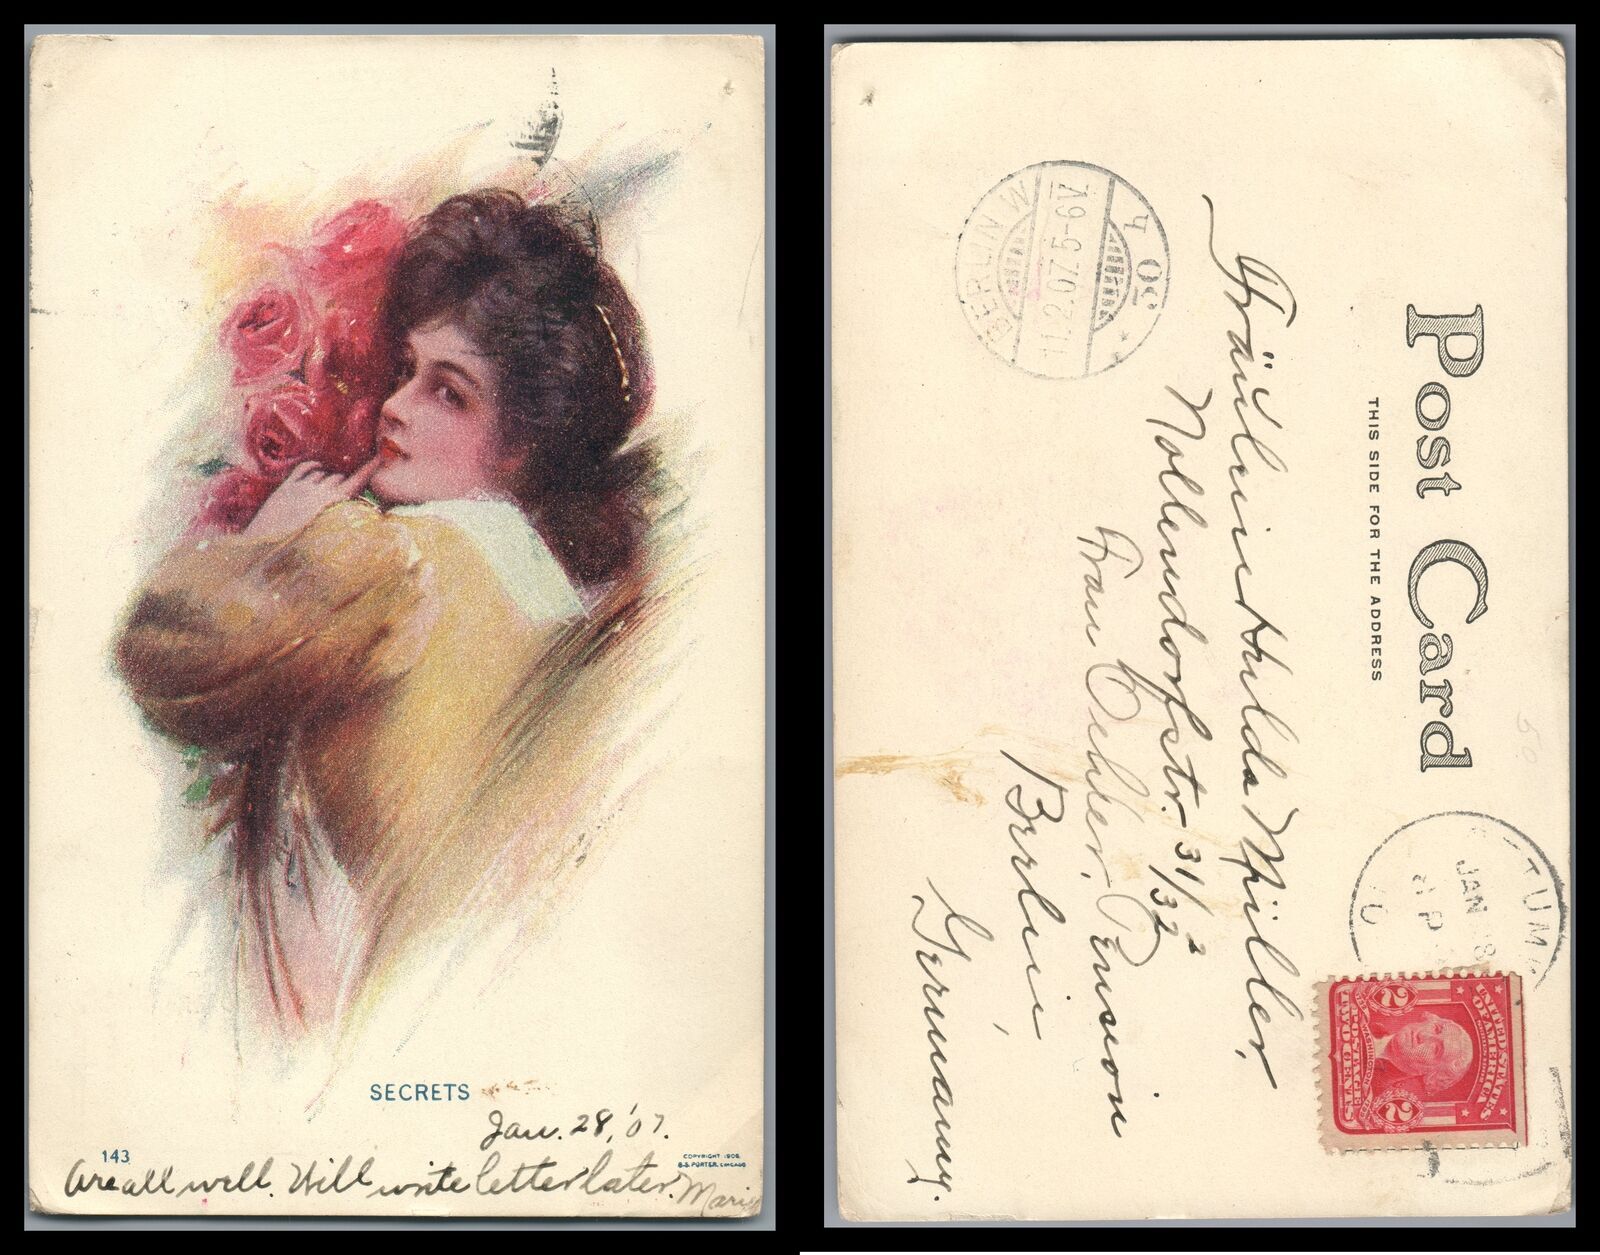 SECRETS
Jan. 28, '07.
143
COPYRIGHT 1906
B.S. PORTER, CHICAGO
Are all well. Will write letter later. Marie
Post Card
THIS SIDE FOR THE ADDRESS
BERLIN W
11.2.07.5-6V.
* 30 h
Fräulein Hulda Müller,
Nollendorfstr. 31/32²
Frau Oehler, Pension
Berlin,
Germany.
TUM
JAN 28
UNITED STATES
OF AMERICA
POSTAGE
TWO CENTS
2
2
50